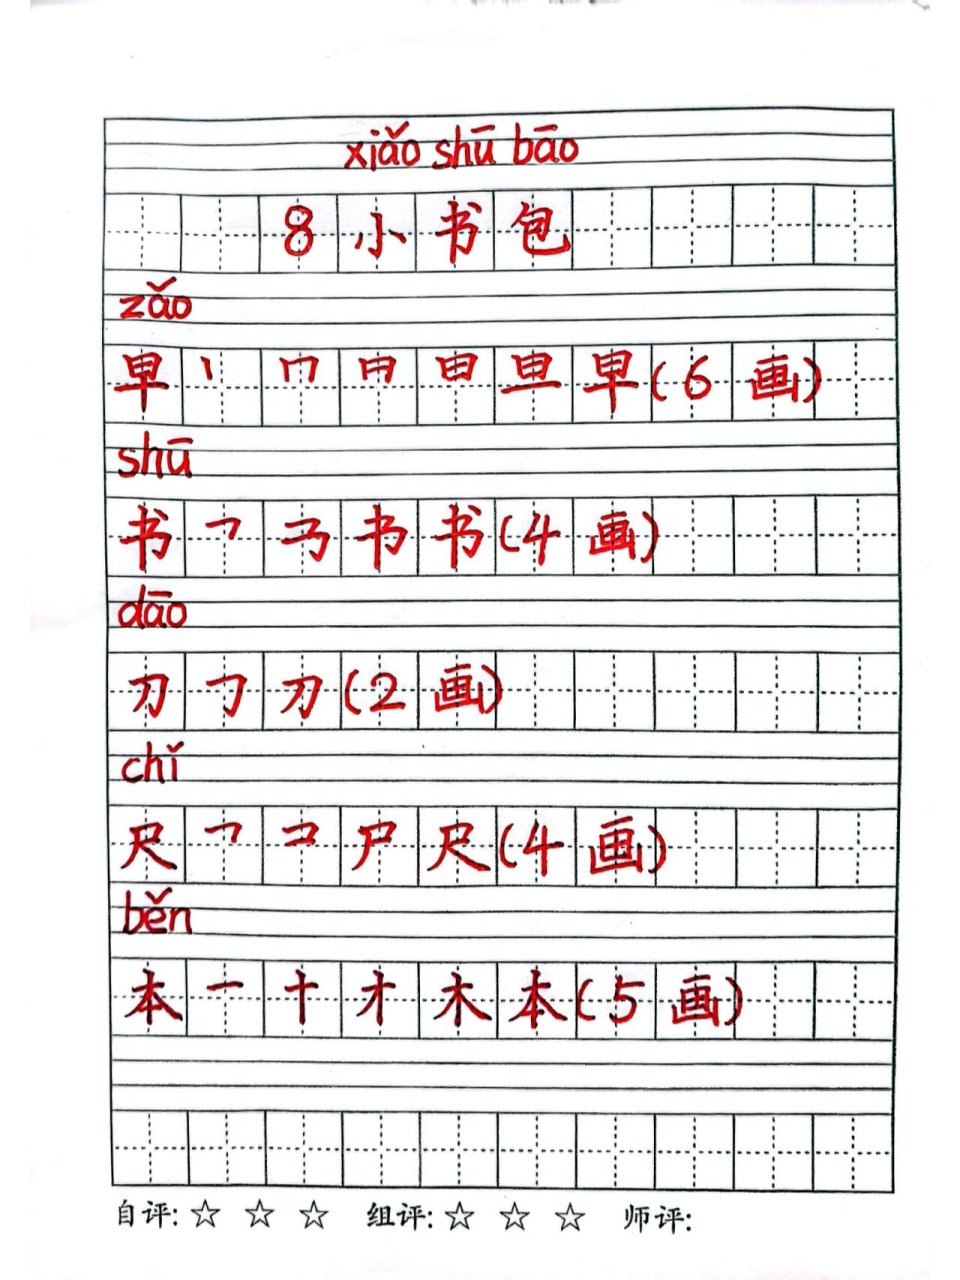 xiǎo shū bāo
8 小书包
zǎo
早 丨 冂 日 日 旦 早 (6 画)
shū
书 乛 书 书 (4 画)
dāo
刀 𠃌 刀 (2 画)
chǐ
尺 乛 コ 尸 尺 (4 画)
běn
本 一 十 才 木 本 (5 画)
自评: ☆ ☆ ☆ 组评: ☆ ☆ ☆ 师评: